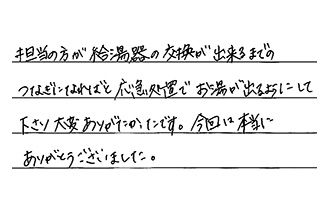 担当の方が給湯器の交換が出来るまでの
つなぎになればと応急処置でお湯が出るようにして
下さり大変ありがたかったです。今回は本当に
ありがとうございました。